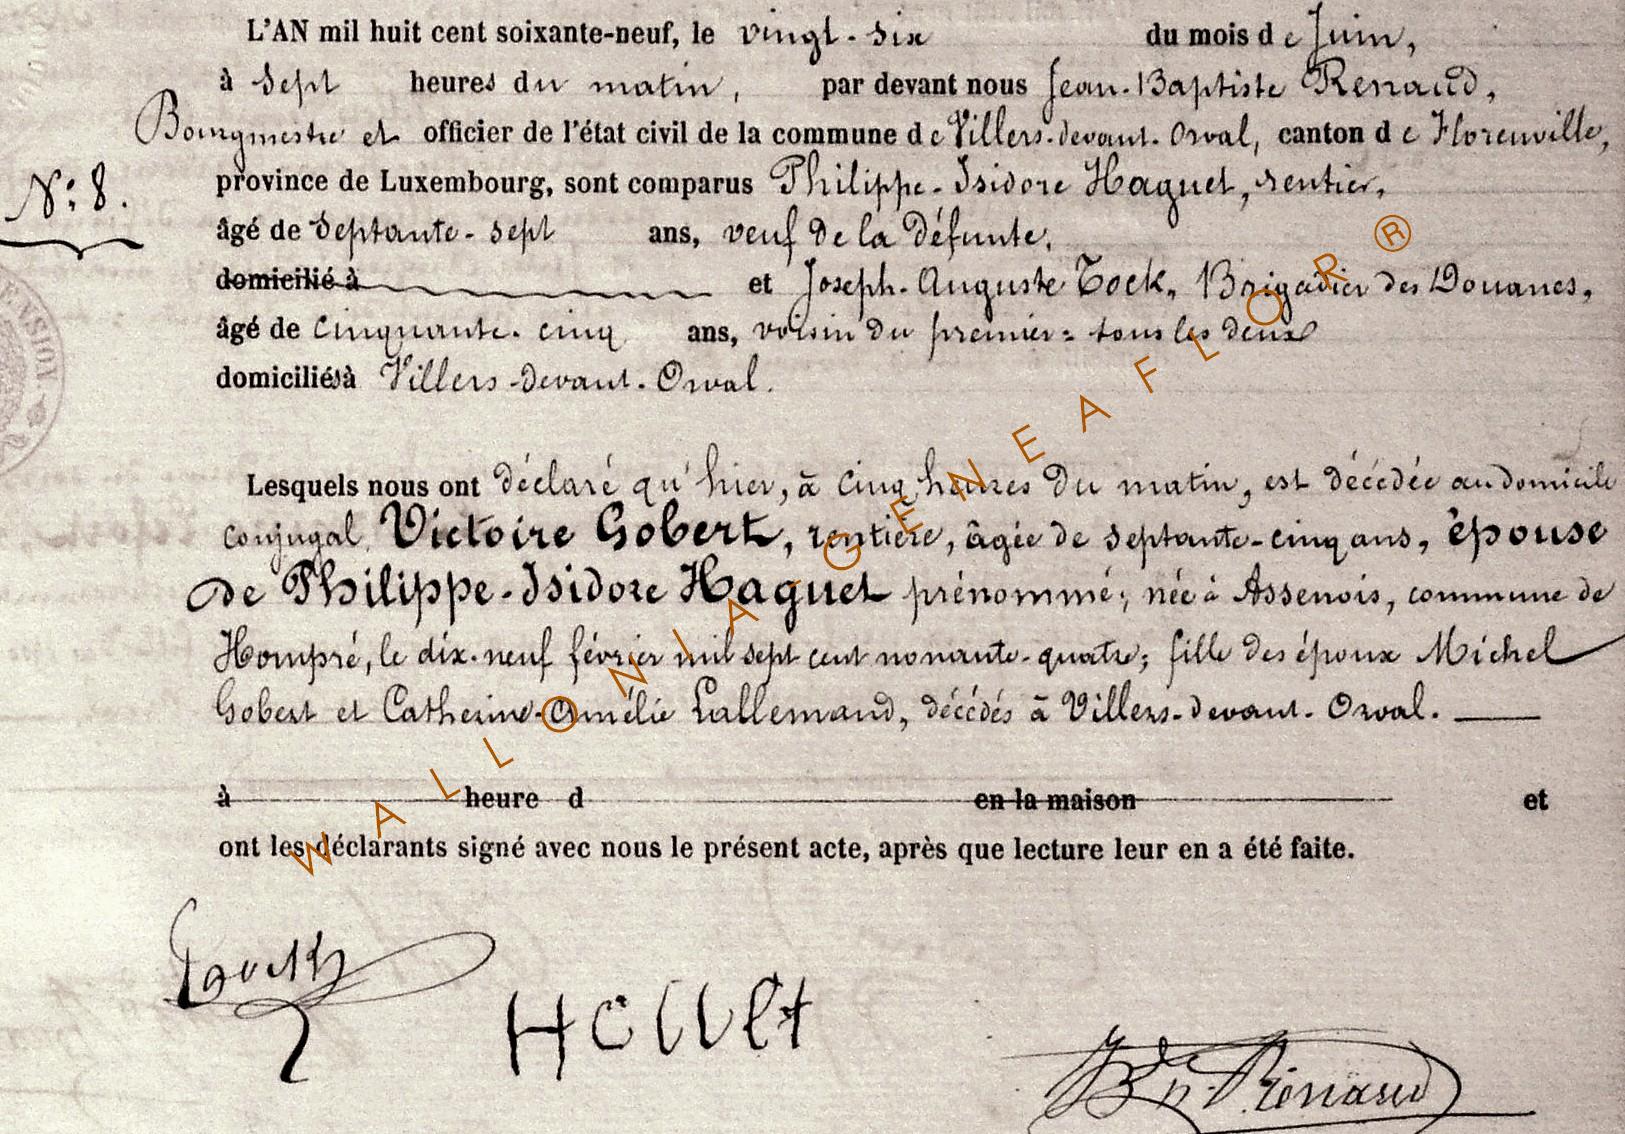 L'AN mil huit cent soixante-neuf, le vingt-six du mois de Juin,
à sept heures du matin, par devant nous Jean-Baptiste Renaud,
Bourgmestre et officier de l'état civil de la commune de Villers-devant-Orval, canton de Florenville,
N.º 8.
province de Luxembourg, sont comparus Philippe-Isidore Haguet, rentier,
âgé de septante-sept ans, veuf de la défunte,
domicilié à et Joseph-Auguste Tock, Brigadier des Douanes,
âgé de cinquante-cinq ans, voisin du premier = tous les deux
domiciliés à Villers-devant-Orval.
Lesquels nous ont déclaré qu'hier, à cinq heures du matin, est décédée au domicile
conjugal, Victoire Gobert, rentière, âgée de septante-cinq ans, épouse
de Philippe-Isidore Haguet prénommé; née à Assenois, commune de
Hompré, le dix-neuf février mil sept cent nonante-quatre; fille des époux Michel
Gobert et Catherine-Amélie Lallemand, décédés à Villers-devant-Orval.
à heure d en la maison et
ont les déclarants signé avec nous le présent acte, après que lecture leur en a été faite.
Jⁿ Bᵗᵉ Renaud
WALLONIA-GENEAFLOR®